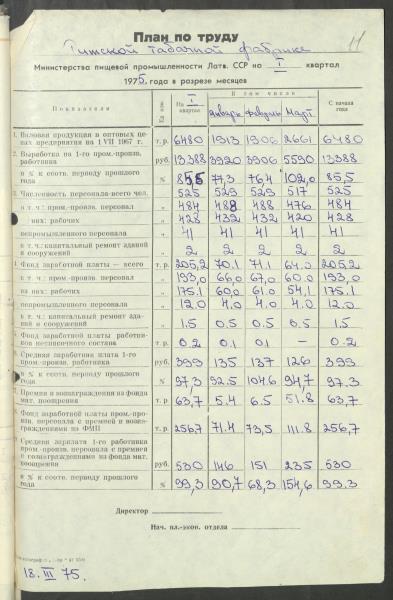 11
План по труду
Рижской табачной фабрике
Министерства пищевой промышленности Латв. ССР на I квартал
1975. года в разрезе месяцев
Показатели
Ед. изм.
На I квартал
В том числе
январь февраль март
С начала года
1. Валовая продукция в оптовых ценах предприятия на 1 VII 1967 г. т. р. 6480 1913 1906 2661 6480
2. Выработка на 1-го пром.-произв. работника руб. 13388 3920 3906 5590 13388
в % к соотв. периоду прошлого года % 85,5 77,3 76,4 102,0 85,5
3. Численность персонала-всего чел. 525 529 529 517 525
в т. ч.: пром.-произв. персонал „ 484 488 488 476 484
из них: рабочих „ 428 432 432 420 428
непромышленного персонала „ 41 41 41 41 41
в т. ч.: капитальный ремонт зданий и сооружений „ 2 2 2 2 2
4. Фонд заработной платы — всего т. р. 205,2 70.1 71.1 64.0 205,2
в т. ч.: пром.-произв. персонал „ 193,0 66,0 67,0 60.0 193,0
из них: рабочих „ 175.1 60,0 61.0 54.1 175.1
непромышленного персонала „ 12.0 4.0 4.0 4.0 12.0
в т. ч.: капитальный ремонт зданий и сооружений „ 1.5 0.5 0.5 0.5 1.5
Фонд заработной платы работников несписочного состава т. р. 0.2 0.1 0.1 — 0.2
Средняя заработная плата 1-го пром.-произв. работника руб. 399 135 137 126 399
в % к соотв. периоду прошлого года % 97.3 92.5 104.6 94,7 97.3
Премии и вознаграждения из фонда мат. поощрения т. р. 63,7 5.4 6.5 51.8 63,7
Фонд заработной платы пром.-произв. персонала с премией и вознаграждениями из ФМП „ 256,7 71.4 73,5 111.8 256,7
Средняя зарплата 1-го работника пром.-произв. персонала с премией и вознаграждениями из фонда мат. поощрения руб. 530 146 151 235 530
в % к соотв. периоду прошлого года % 99,3 90,7 68,3 154,6 99.3
Директор
Нач. пл.-экон. отдела
18. III 75.